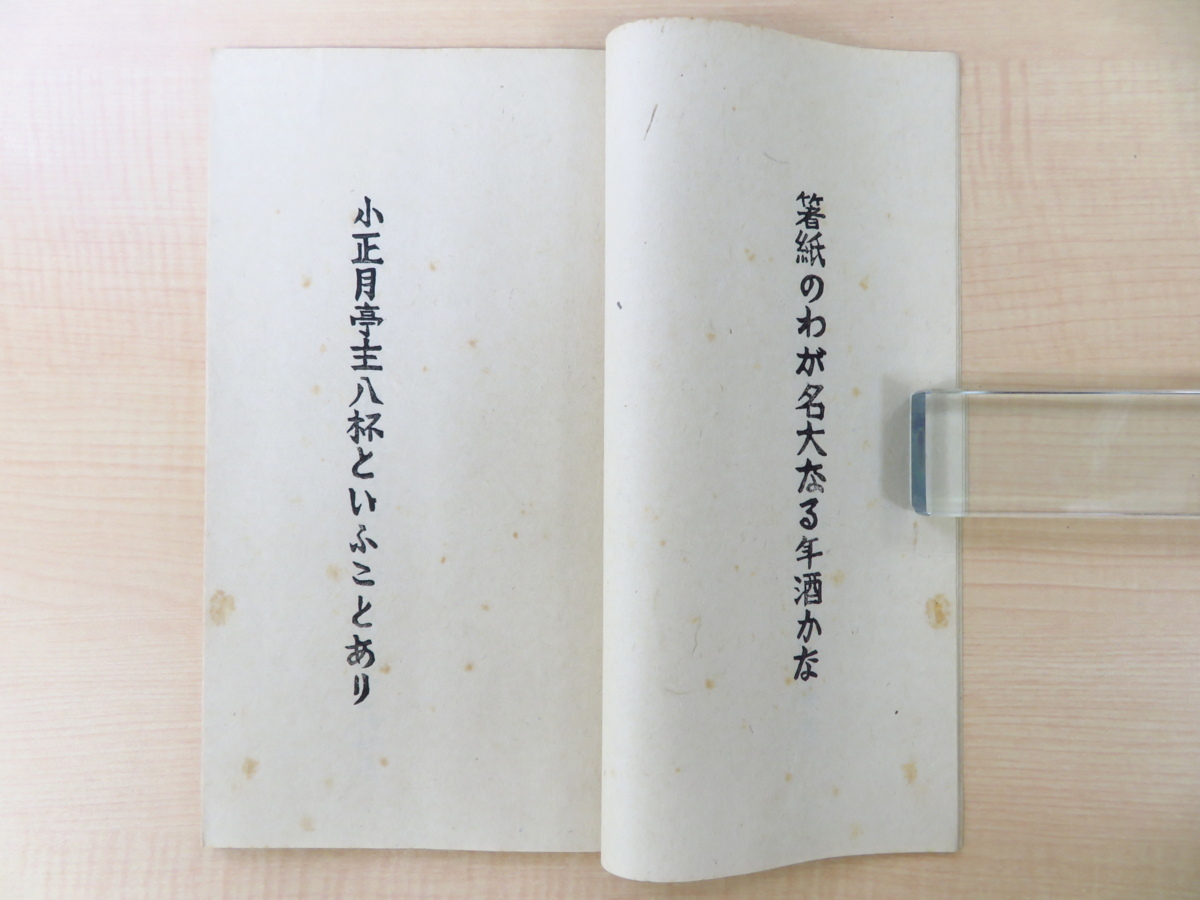 箸紙のわが名大なる年酒かな
小正月亭主八杯といふことあり